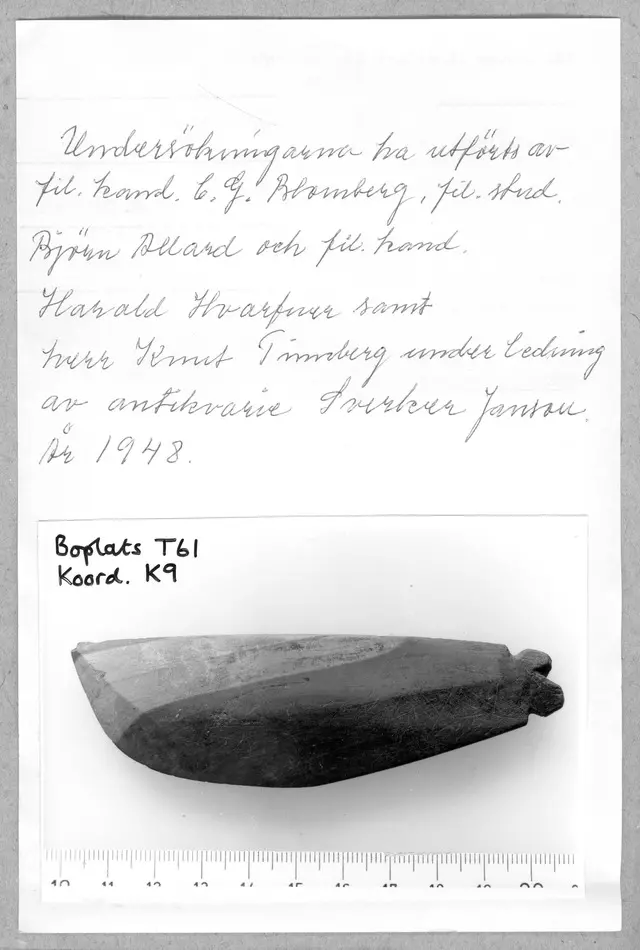 Undersökningarna ha utförts av
fil. kand. C. G. Blomberg, fil. stud.
Björn Allard och fil. kand.
Harald Hvarfner samt
herr Knut Tinnberg under ledning
av antikvarie Sverker Janson.
År 1948.
Boplats T61
Koord. K9
10 11 12 13 14 15 16 17 18 19 20